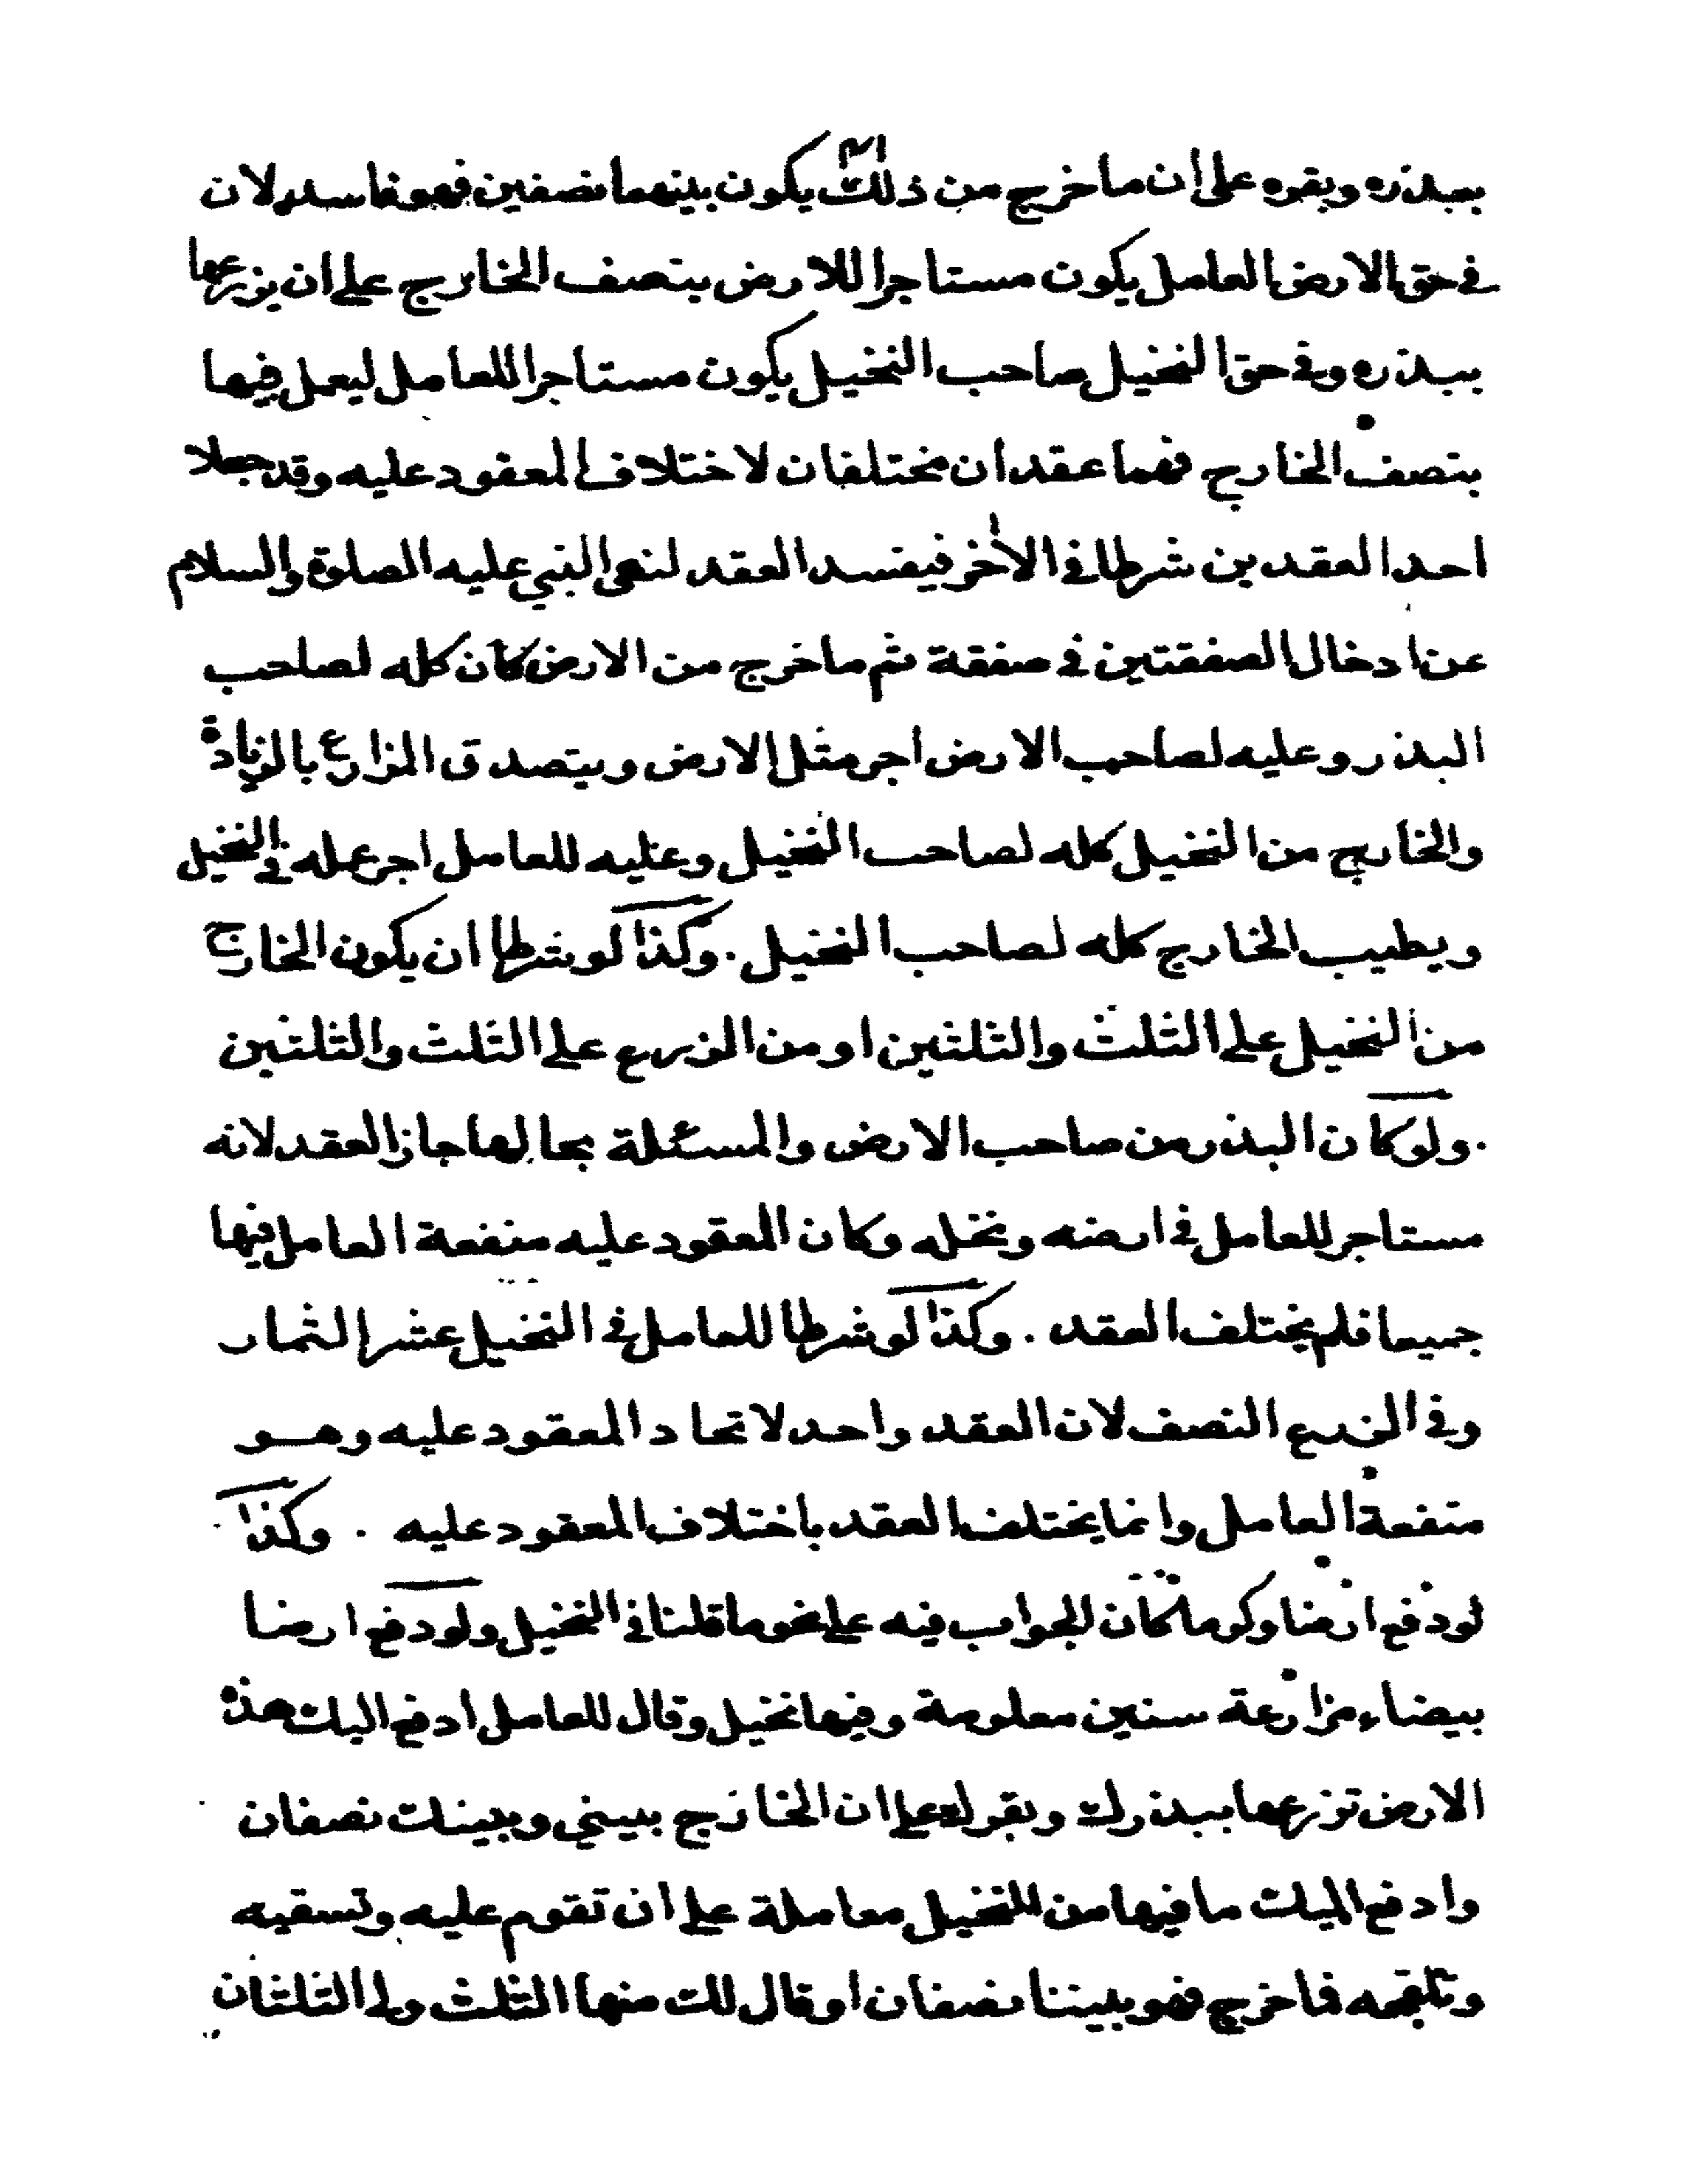 ببذره وبقره على ان ما خرج من ذلك يكون بينهما نصفين فهو فاسد لان
في حق الارض العامل يكون مستاجرا للارض بنصف الخارج على ان يزرعها
ببذره وفي حق النخيل صاحب النخيل يكون مستاجرا للعامل ليعمل فيها
بنصف الخارج فهما عقدان مختلفان لاختلاف المعقود عليه وقد جعلا
احد العقدين شرطا في الاخر فيفسد العقد لنهى النبي عليه الصلوة والسلام
عن ادخال الصفقتين في صفقة ثم ما خرج من الارض كان كله لصاحب
البذر وعليه لصاحب الارض اجر مثل الارض ويتصدق المزارع بالزيادة
والخارج من النخيل كله لصاحب النخيل وعليه للعامل اجر عمله في النخيل
ويطيب الخارج كله لصاحب النخيل . وكذا لو شرطا ان يكون الخارج
من النخيل على الثلث والثلثين او من الزرع على الثلث والثلثين
. ولو كان البذر من صاحب الارض والمسئلة بحالها جاز العقد لانه
مستاجر للعامل في ارضه ونخله وكان المعقود عليه منفعة العامل فيها
جميعا فلم يختلف العقد . وكذا لو شرطا للعامل في النخيل عشر الثمار
وفي الزرع النصف لان العقد واحد لاتحاد المعقود عليه وهو
منفعة العامل وانما يختلف العقد باختلاف المعقود عليه . وكذا
لو دفع ارضا وكرما كان الجواب فيه على نحو ما قلنا في النخيل ولو دفع ارضا
بيضاء مزارعة سنين معلومة وفيها نخيل وقال للعامل ادفع اليك هذه
الارض تزرعها ببذرك وبقرك على ان الخارج بيني وبينك نصفان
وادفع اليك ما فيها من النخيل معاملة على ان تقوم عليه وتسقيه
وتلقحه فما خرج فهو بيننا نصفان او قال لك منها الثلث ولي الثلثان